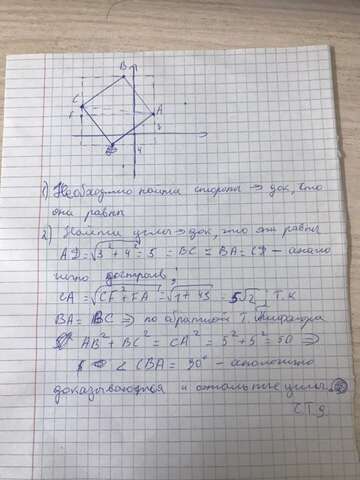 B
C
A
1) Необходимо найти стороны → док, что
они равны
2) Найти углы → док, что они равны
AD = √3² + 4² = 5 = BC = BA = CD – анало
гично достроив;
CA = √CF² + FA² = √1 + 49 = 5√2; Т.К
BA = BC ⇒ по обратной Т. Пифагора
AB² + BC² = CA² = 5² + 5² = 50 ⇒
∠CBA = 90° – аналогично
доказываются и остальные углы.
ЧТД